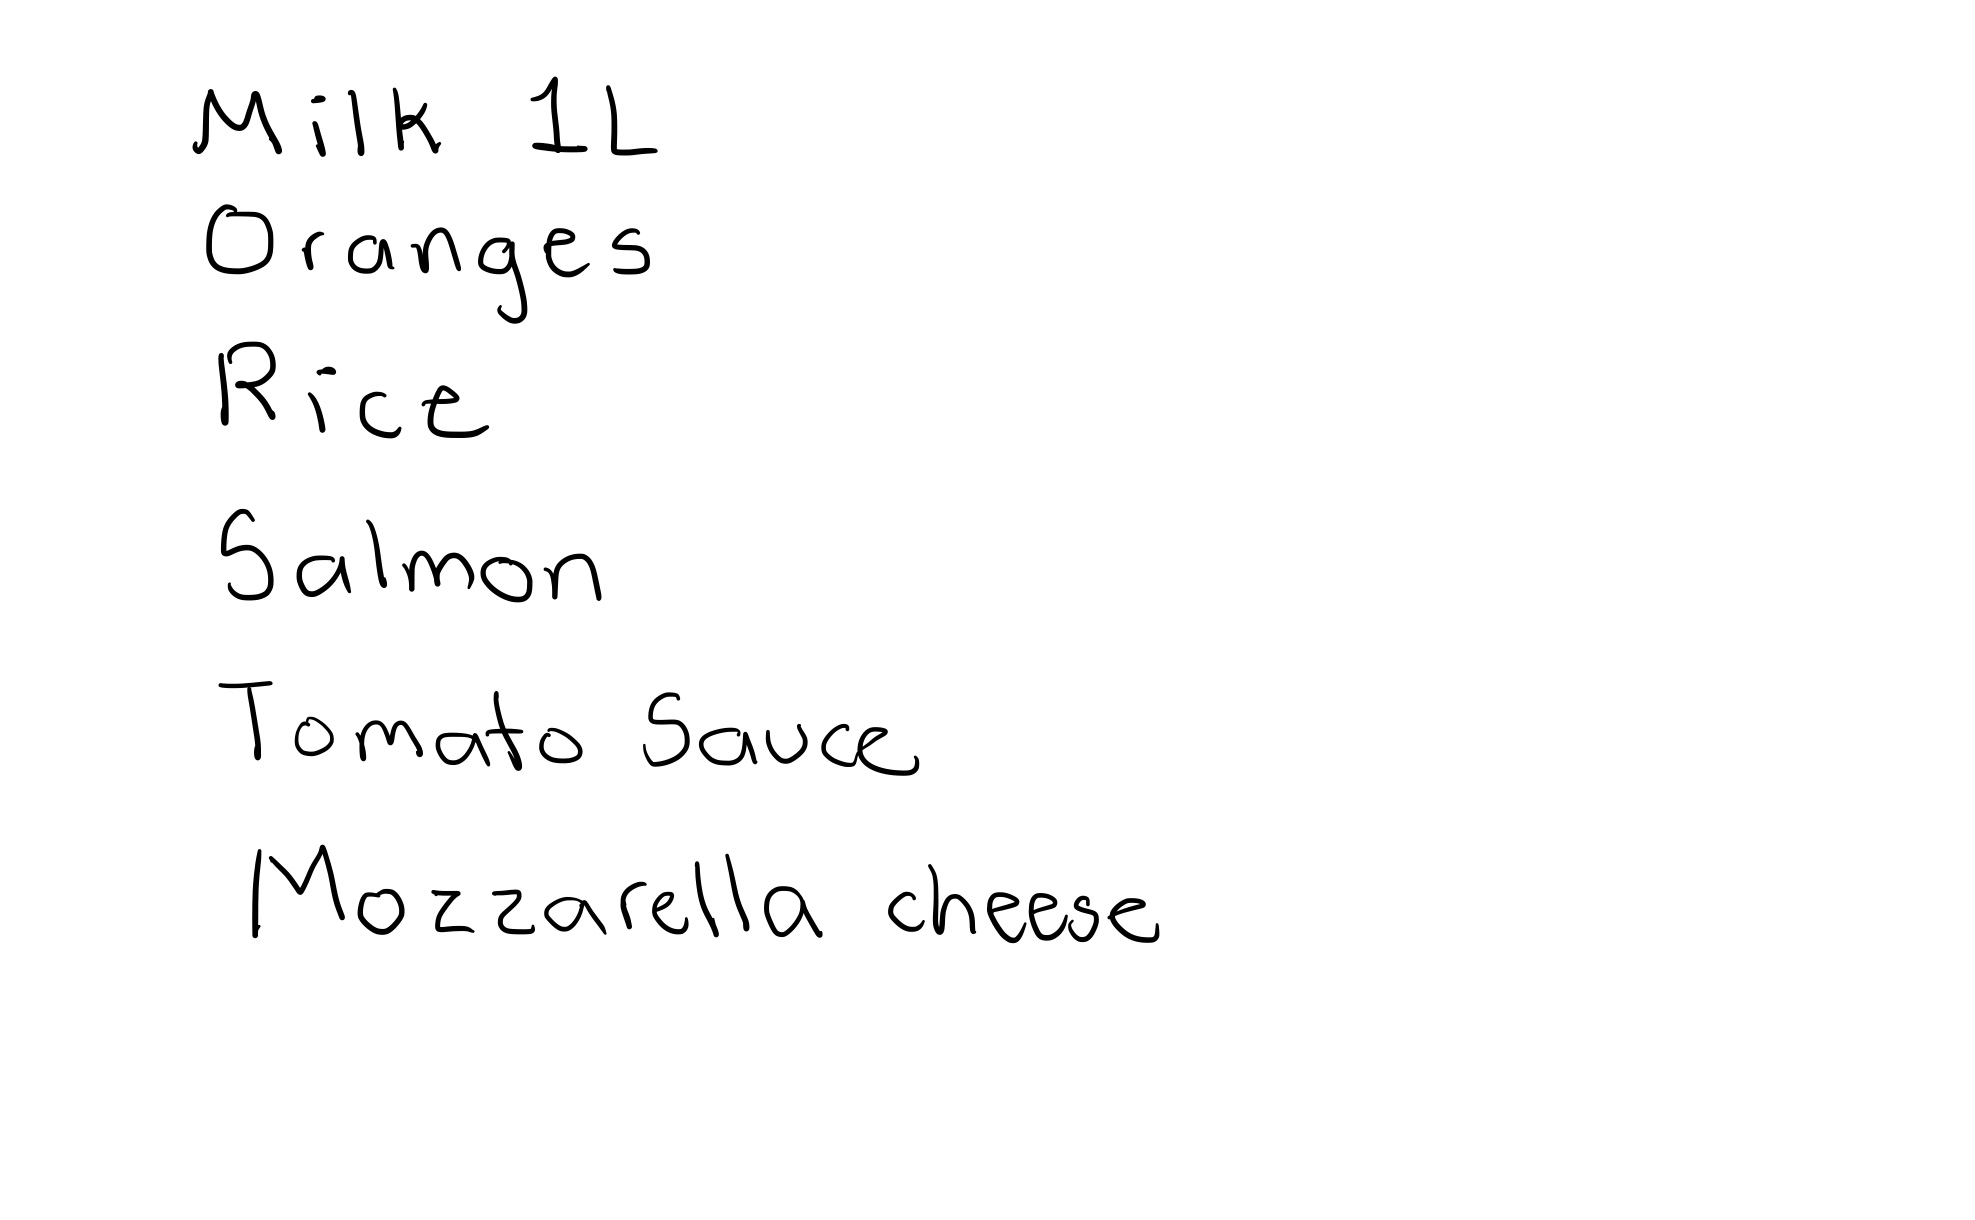 Milk 1L
Oranges
Rice
Salmon
Tomato Sauce
Mozzarella cheese